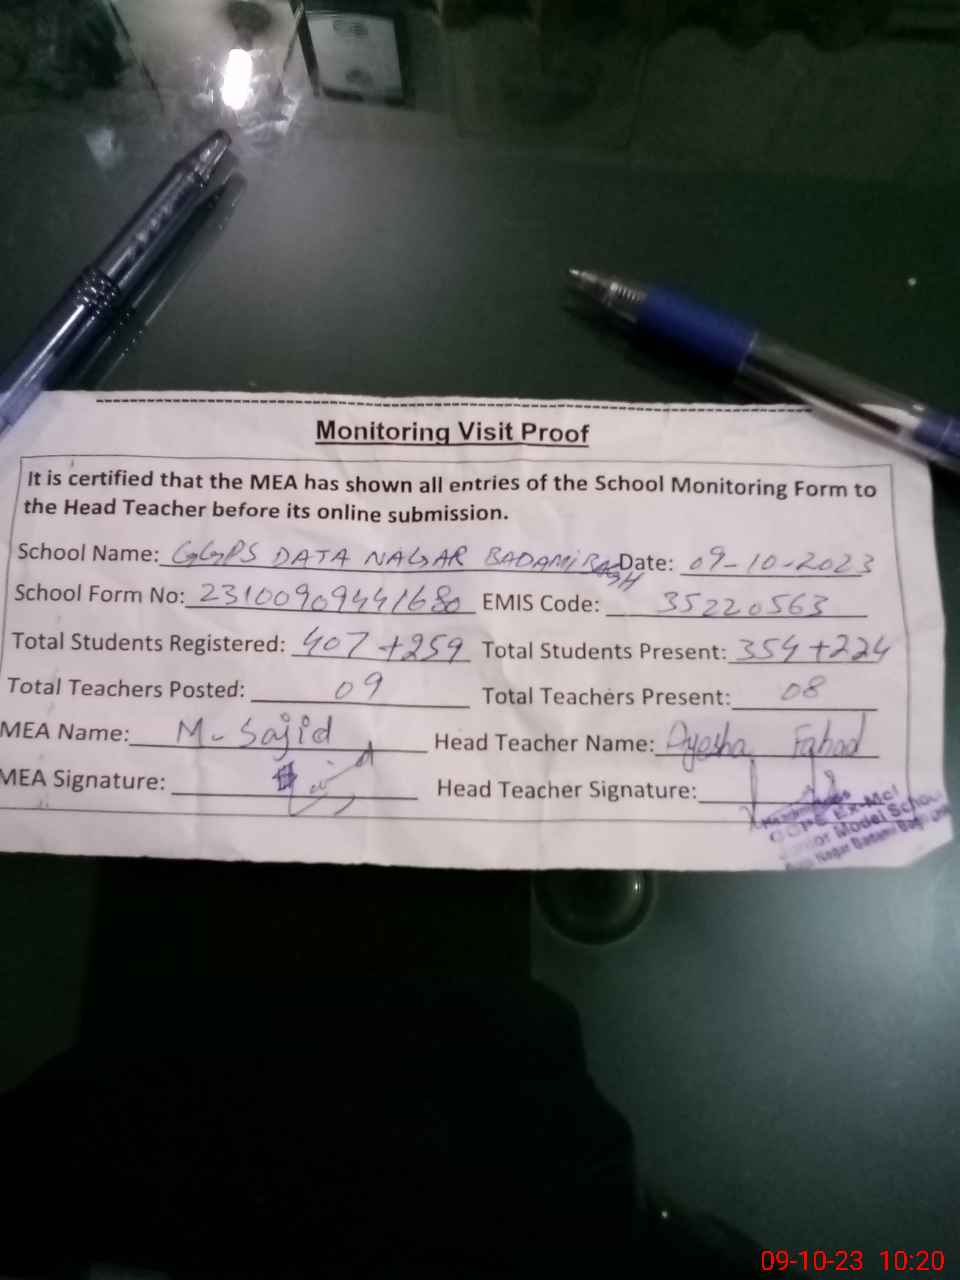 Monitoring Visit Proof
It is certified that the MEA has shown all entries of the School Monitoring Form to
the Head Teacher before its online submission.
School Name: GGPS DATA NAGAR BADAMIBAGH Date: 09-10-2023
School Form No: 23100909441680 EMIS Code: 35220563
Total Students Registered: 407+259 Total Students Present: 354+224
Total Teachers Posted: 09 Total Teachers Present: 08
MEA Name: M. Sajid Head Teacher Name: Ayesha Fahad
MEA Signature: Head Teacher Signature:
Ex-Mcl
Junior Model School
Nagar Badami Bagh
09-10-23 10:20